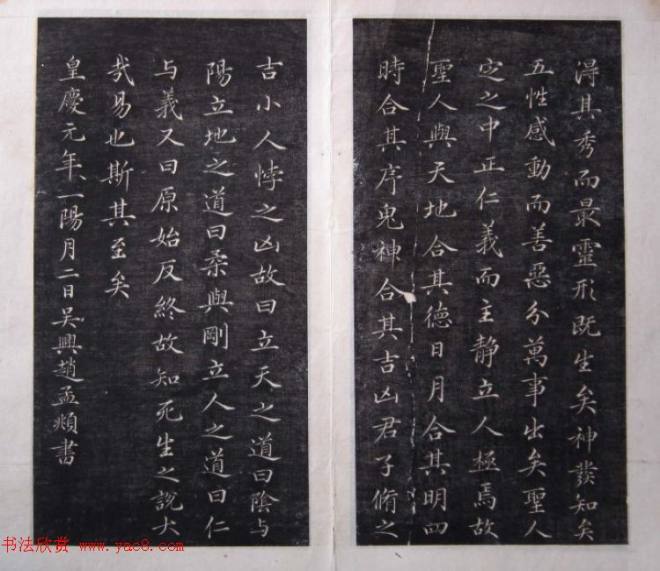 淂其秀而最靈形既生矣神發知矣
五性感動而善惡分萬事出矣聖人
㝎之中正仁義而主静立人極焉故
聖人與天地合其德日月合其明四
時合其序鬼神合其吉凶君子脩之
吉小人悖之凶故曰立天之道曰陰与
陽立地之道曰柔與剛立人之道曰仁
与義又曰原始反終故知死生之說大
哉易也斯其至矣
皇慶元年一陽月二日吴興趙孟頫書
书法欣赏 www.yac8.com